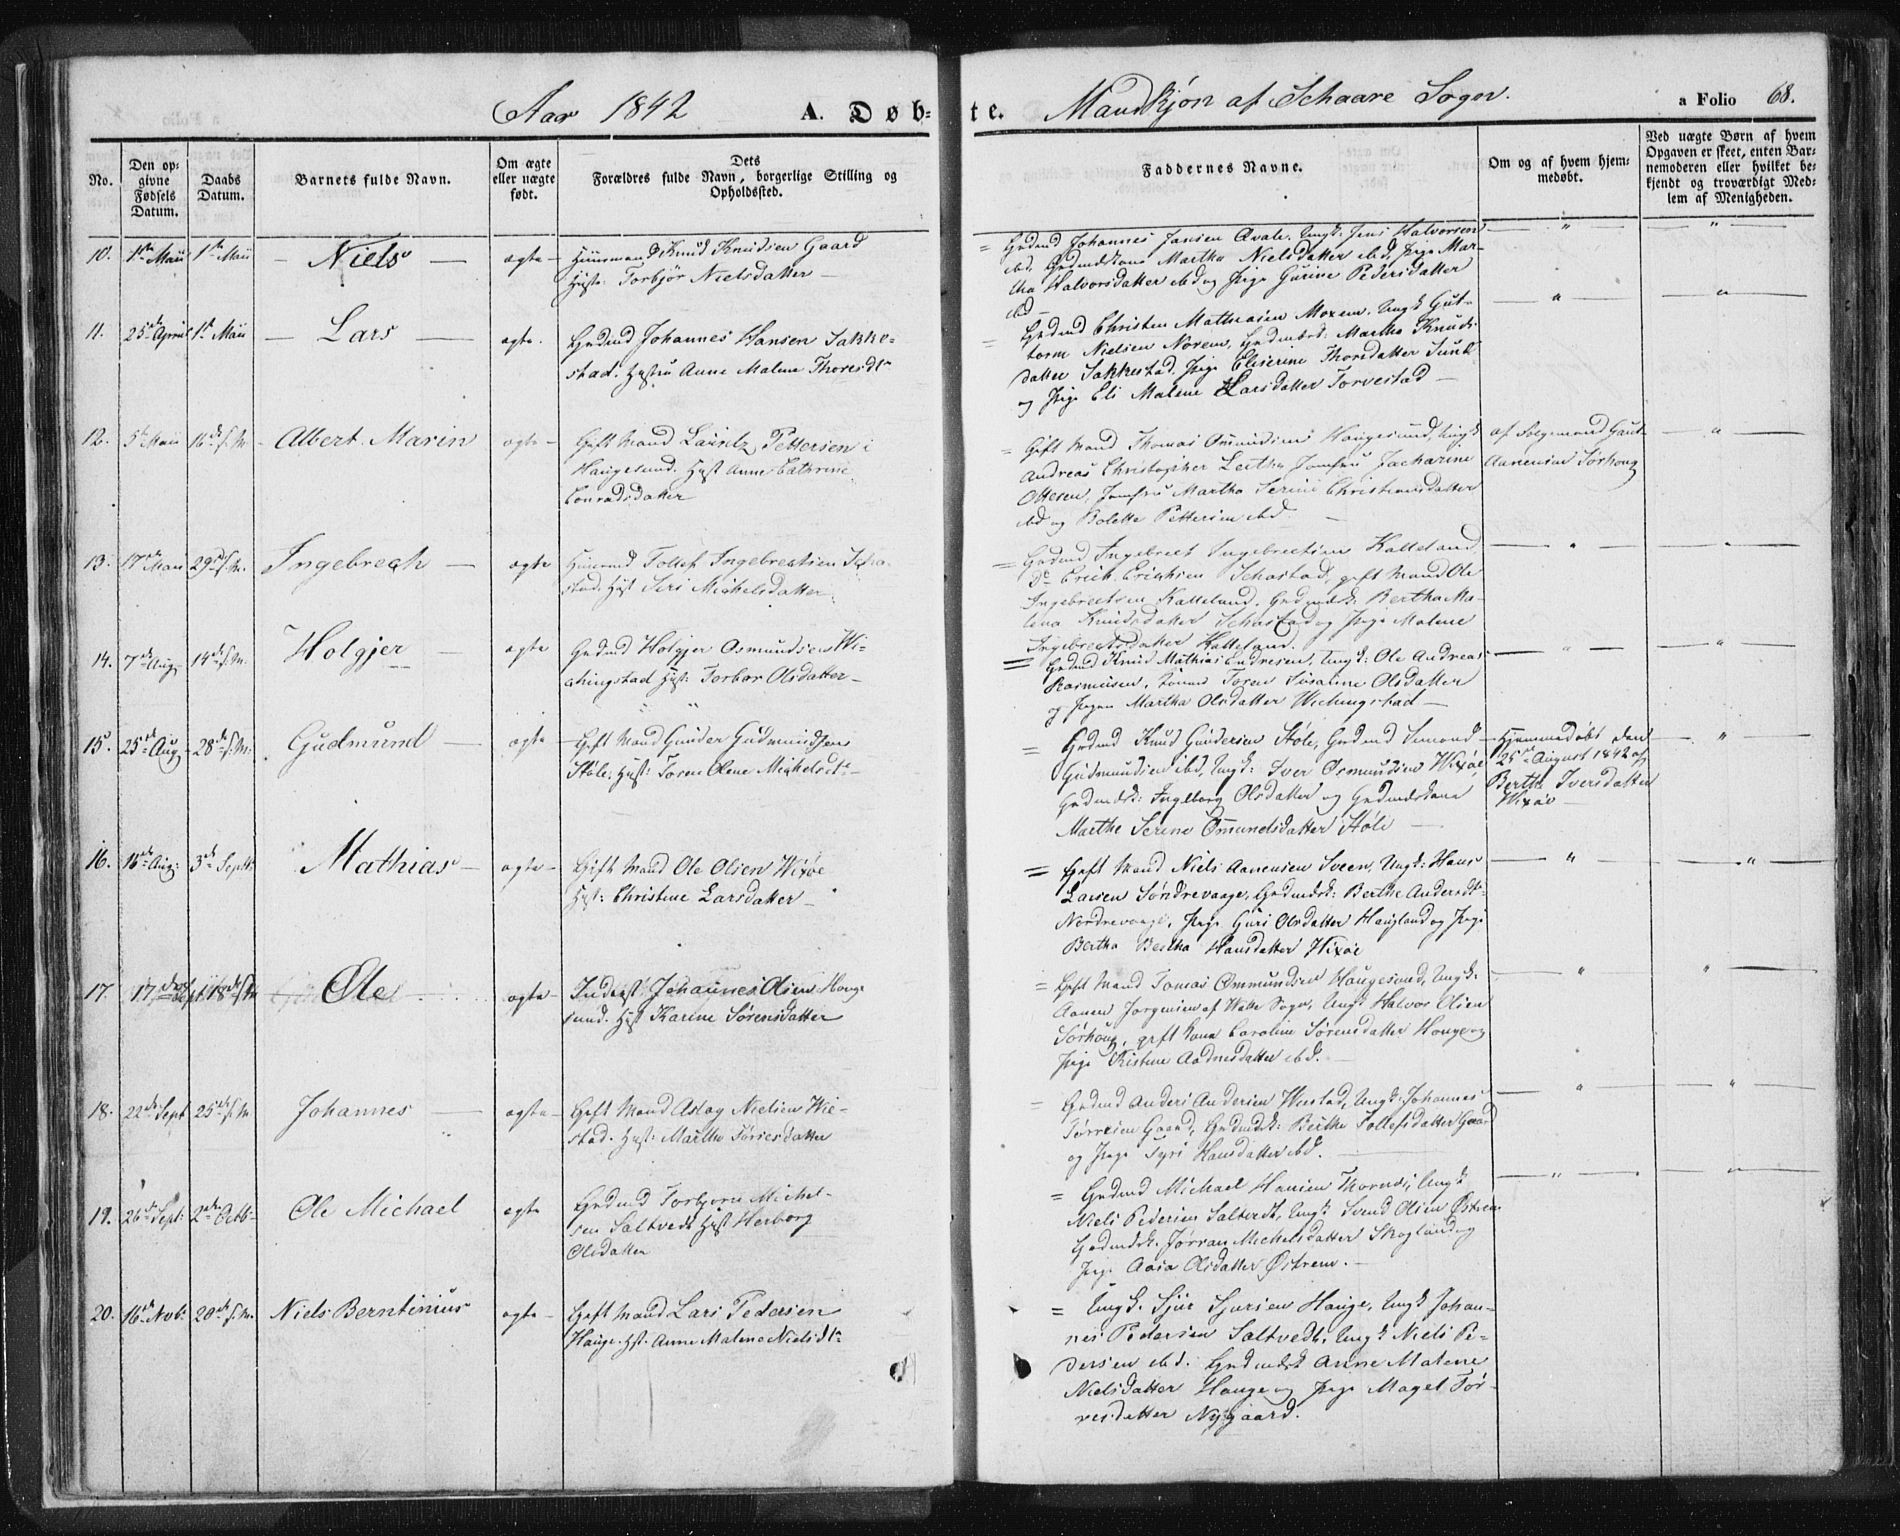 Aar 1842 A. Døb-
te. Mandkjøn af Schaare Sogn. a Folio 68.
No.
Den op-
givne
Fødsels
Datum.
Daabs
Datum.
Barnets fulde Navn.
Om ægte
eller uægte
født.
Dets
Forældres fulde Navn, borgerlige Stilling og
Opholdssted.
Faddernes Navne.
Om og af hvem hjem-
medøbt.
Ved uægte Børn af hvem
Opgaven er skeet, enten Bar-
nemoderen eller hvilket be-
kjendt og troværdigt Med-
lem af Menigheden.
10. 1ste Maii 1ste Maii Niels ægte
Huusmand Knud Knudsen Gaard
Hust: Torbjør Nielsdatter
Grdmd Johannes Jansen Qvale, Ungk: Jens Halvorsen
ibd, Grdmdskone Martha Nielsdatter ibd, Pige Mar-
tha Halvorsdatter ibd og Pige Gurine Pedersdatter
ibd
11. 25de April 1ste Maii Lars ægte.
Grdmd Johannes Hansen Sakke-
stad. Hustru Anne Malene Thoresdtr
Grdmd Christen Mathiasen Moxem. Ungk Gut-
torm Nielsen Norem, Grdmdsk: Martha Knuds-
datter Sakkestad, Pige Eliserine Thorsdatter Sund
og Pige Eli Malene Larsdatter Torvestad
12. 5te Maii 16de s. M. Albert Marin ægte
Gift Mand Lauritz Pettersen i
Haugesund. Hust Anne Cathrine
Conradsdatter
Gift Mand Thomas Ommundsen Haugesund, Ungk
Andreas Christopher Leethe Jomfru Zacharine
Ottesen, Jomfru Martha Serine Christensdatter
ibd og Bolette Pettersen ibd
af Selgemand Gaut
Aanensen Sørhoug
13. 17de Maii 29de s. M. Ingebrech ægte
Huusmd Tollef Ingebrectsen Scha-
stad. Hust Siri Michelsdatter
Grdmd Ingebrect Ingebrectsen Kalleland
Do Erich Erichsen Schastad, gift Mand Ole
Ingebrectsen Kalleland. Grdmdsk: Bertha Ma-
lena Knudsdatter Schastad og Pige Malene
Ingebrectsdatter Kalleland.
14. 7de Aug 14de s. M. Holgjer ægte
Grdmd Holgjer Osmundsen Wi-
chingstad Hust: Torbor Olsdatter
Grdmd Knud Mathias Endresen, Ungk: Ole Andreas
Rasmusen, Toren Susanne Olsdatter
og Pigen Martha Olsdatter Wichingstad
15. 25de Aug 28de s. M. Gudmund ægte
Gift Mand Gunder Gudmundsen
Støle. Hust: Toren Olene Michelsdtr
Grdmd Knud Gundersen Støle, Grdmd Simond
Gudmundsen ibd, Ungk: Iver Osmundsen Wixøe
Grdmdsk: Ingeborg Olsdatter og Grdmdskone
Marthe Serine Omundsdatter Støle
Hjemmedøbt den
25de August 1842 af
Berthe Iversdatter
Wixøe
16. 16de Aug: 3de Septb Mathias ægte
Gift Mand Ole Olsen Wixøe
Hust: Christine Larsdatter
Gift Mand Niels Aanensen Sveen, Ungk: Hans
Larsen Søndrevaage, Grdmdsk: Berthe Andersdtr
Nordrevaage, Pige Guri Olsdatter Haugland og Pige
Bertha Bertha Hansdatter Wixøe
17. 17de Sept 18de s. M Ole ægte
Inderst Johannes Olsen Houge
sund. Hust Karine Sørensdatter
Gift Mand Tomas Ommundsen Haugesund, Ungk.
Aanen Jørgensen af Sogn, Ungk Halvor Olsen
Sørhoug, gift kone Caroline Sørensdatter Houge og
Pige Kistine Aadnesdatter ibd.
18. 22de Sept 25de s. M Johannes ægte
Gift Mand Aslag Nielsen Wie-
stad. Hust: Marthe Tørresdatter
Grdmd Anders Andersen Weestad, Ungk: Johannes
Tørresen Gaard, Grdmdsk: Berthe Tollefsdatter Gaard
og Pige Syri Hansdatter ibd.
19. 26de Sept. 2den Octb Ole Michael ægte
Grdmd Torbjørn Michel-
sen Saltvedt Hust Herborg
Olsdatter
Grdmd Michael Hansen Ungk
Niels Pedersen Saltvedt, Ungk Svend Olsen Østrem
Grdmdsk. Jorran Michelsdatter Skogland og
Pige Aasa Olsdatter Østrem.
20. 16de Nob: 20de s. M. Niels Berntinius ægte
Gift Mand Lars Pedersen
Hauge. Hst. Anne Malene Nielsdtr
Ungk. Sjur Sjursen Hauge, Ungk Johan-
nes Pedersen Saltvedt, Ungk Niels Pe-
dersen ibd. Grdmdsk Anne Malene
Nielsdatter Hauge og Pige Magel Tør-
resdatter Nygaard.